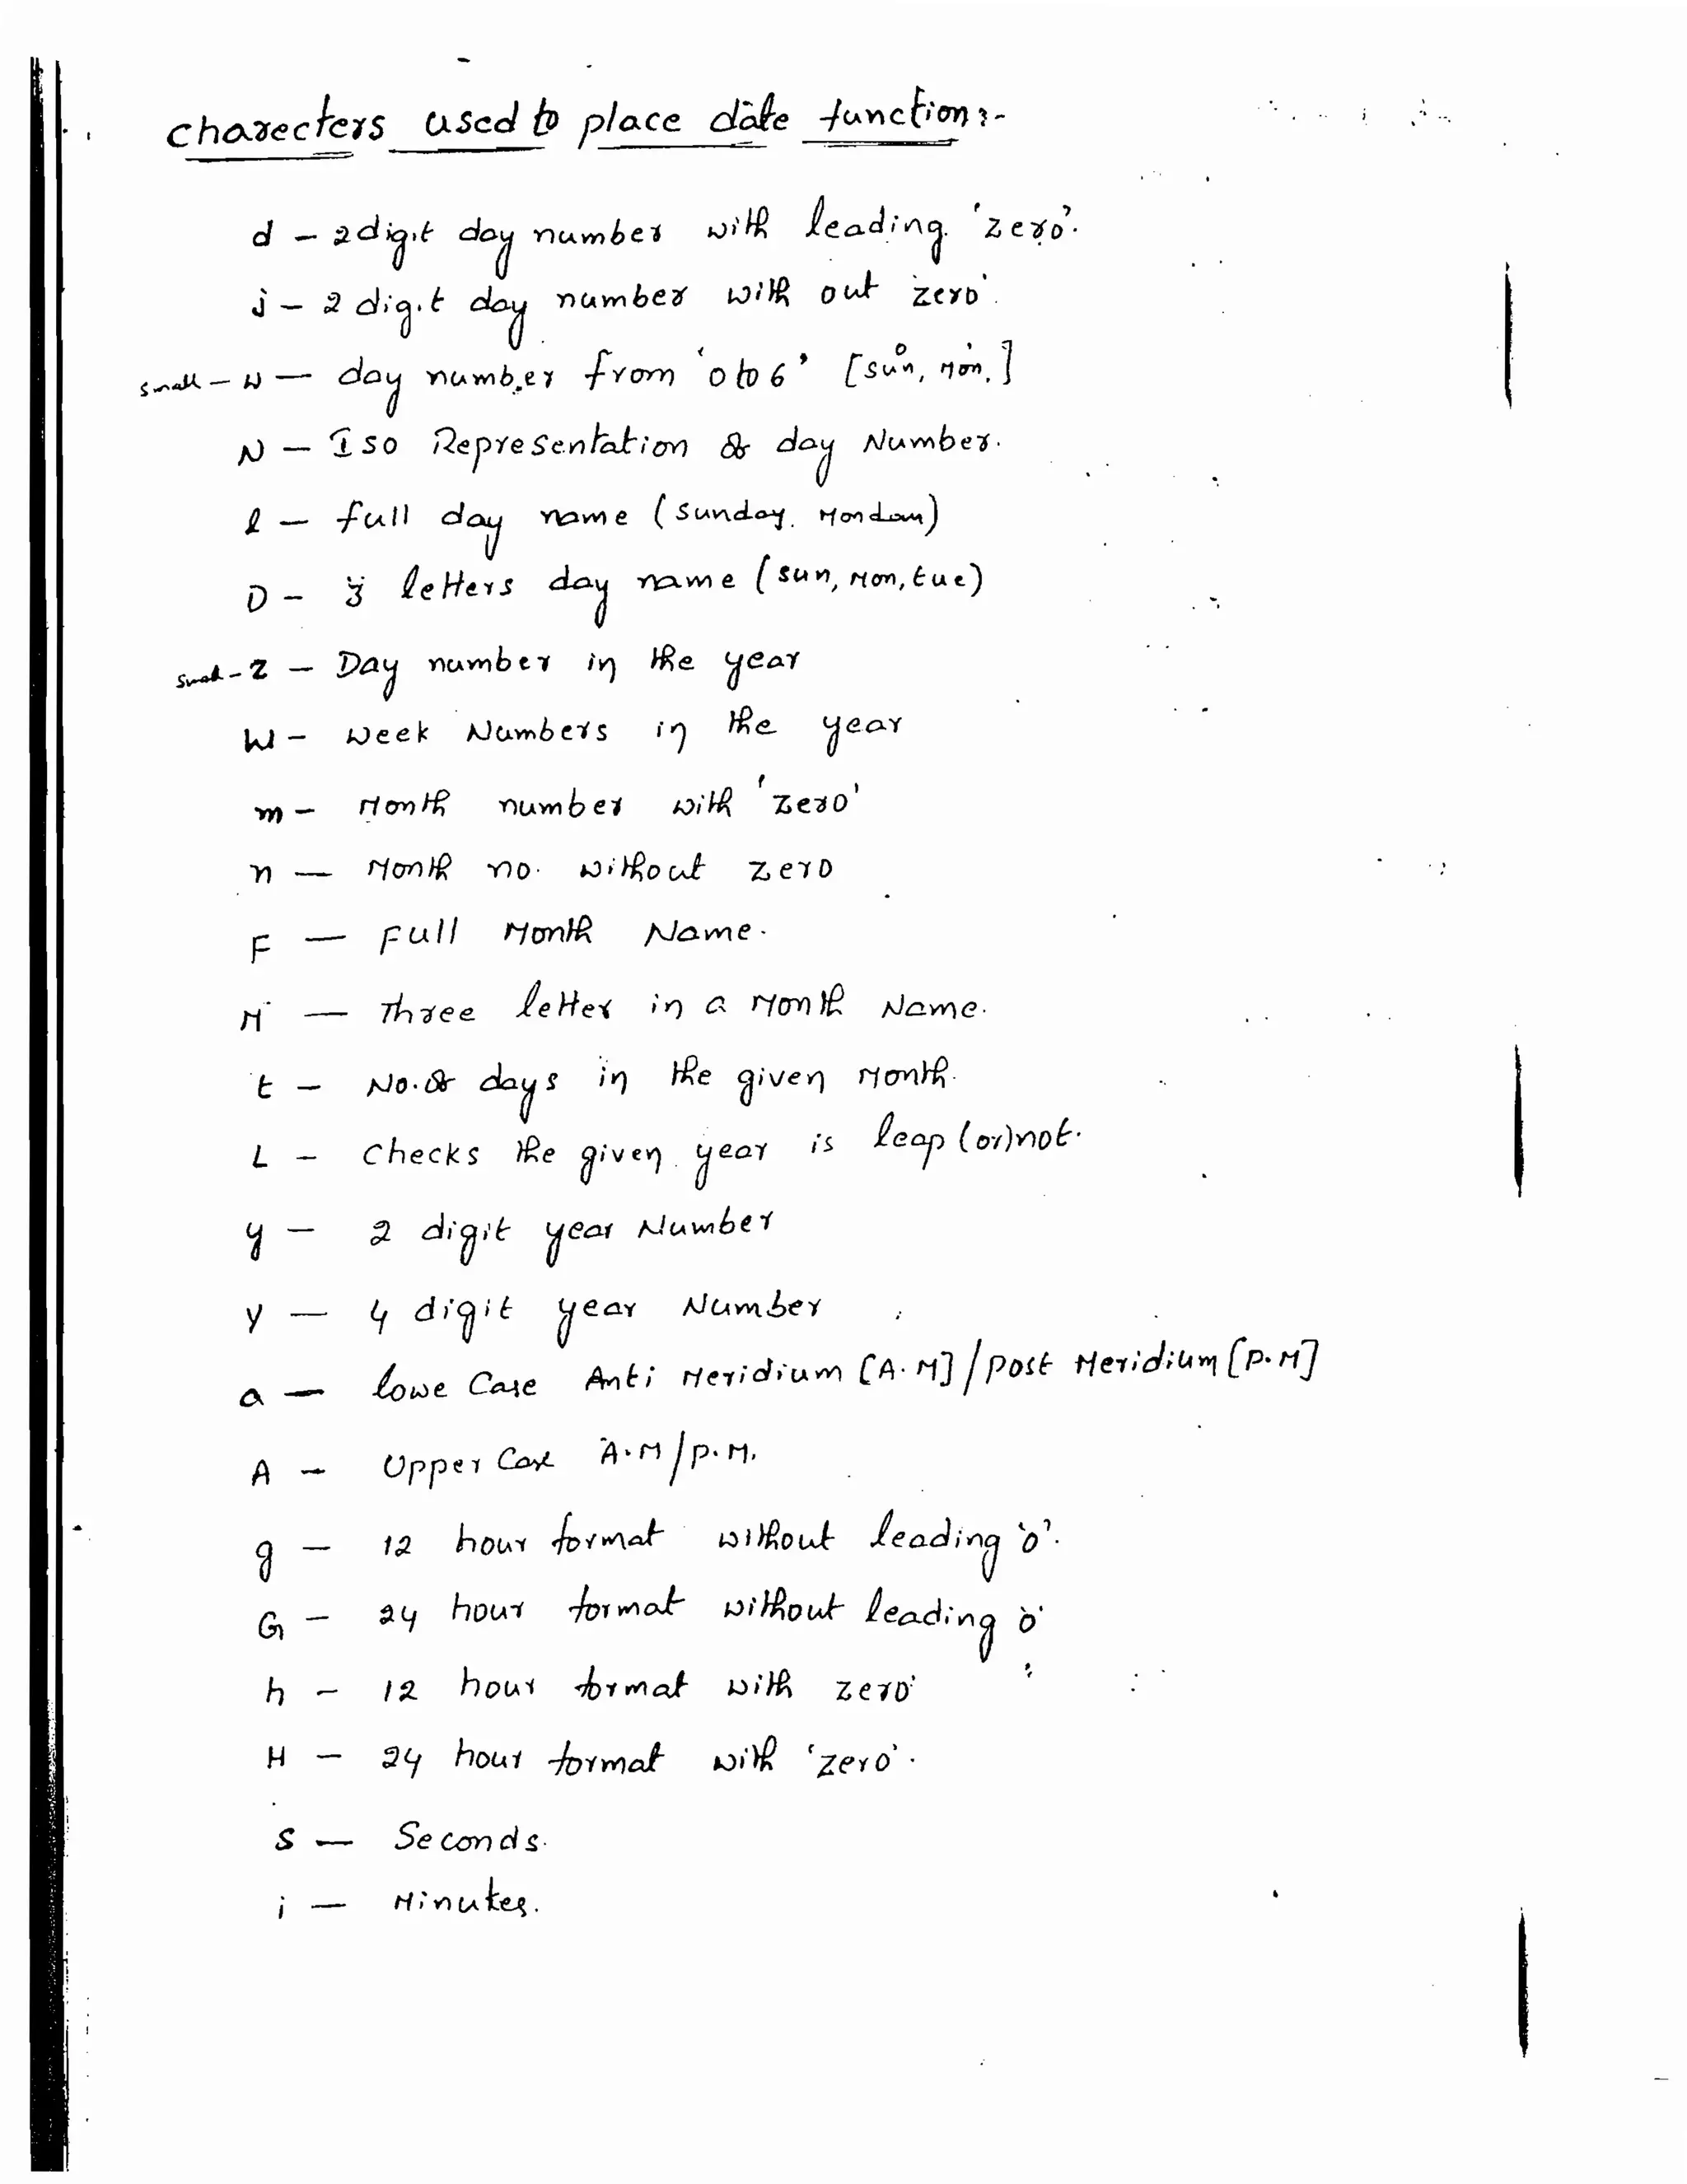 charecters used to place date function:-
d - 2digit day number with leading 'zero'.
j - 2 digit day number with out 'zero'.
small - w - day number from '0 to 6' [sun, Mon.]
N - Iso Representation of day Number.
l - full day name (sunday. Monday)
D - 3 letters day name (sun, Mon, tue)
small - z - Day number in the year
W - week Numbers in the year
m - Month number with 'zero'
n - Month no. without zero
F - Full Month Name.
M - Three letter in a Month Name.
t - No. of days in the given Month.
L - Checks the given year is leap (or) not.
y - 2 digit year Number
Y - 4 digit year Number
a - lowe Case Anti Meridium [A.M] / post Meridium [P.M]
A - Upper Case A.M / P.M.
g - 12 hour format without leading '0'.
G - 24 hour format without leading '0'
h - 12 hour format with zero'
H - 24 hour format with 'zero'.
s - Seconds.
i - Minutes.